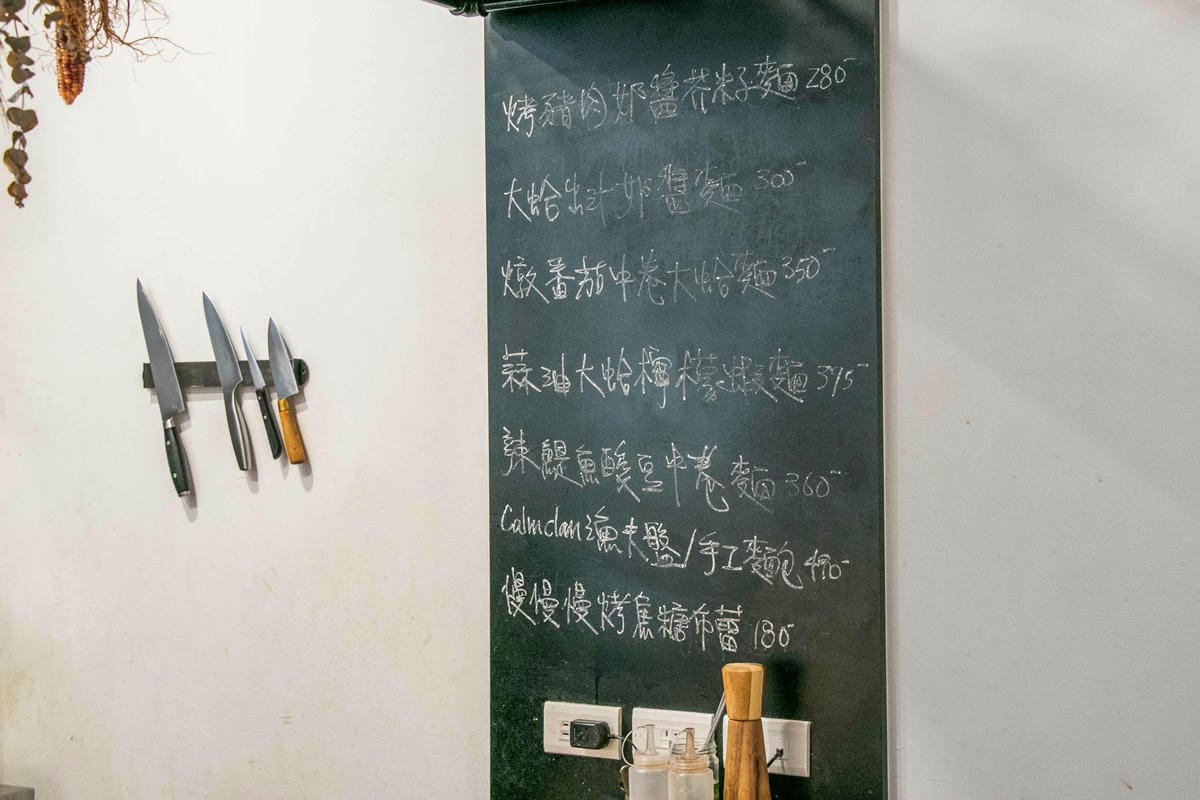 烤豬肉奶醬芥米子麵 280-
大蛤出汁奶醬麵 300-
燉番茄中卷大蛤麵 350-
蒜油大蛤檸檬蝦麵 375-
辣鯷魚酸豆中卷麵 360-
Calmclan漁夫盤/手工麵包 490-
慢慢慢烤焦糖布蕾 180-